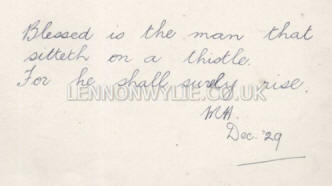 Blessed is the man that
sitteth on a thistle.
For he shall surely rise.
LENNONWYLIE.CO.UK
M.H.
Dec. '29